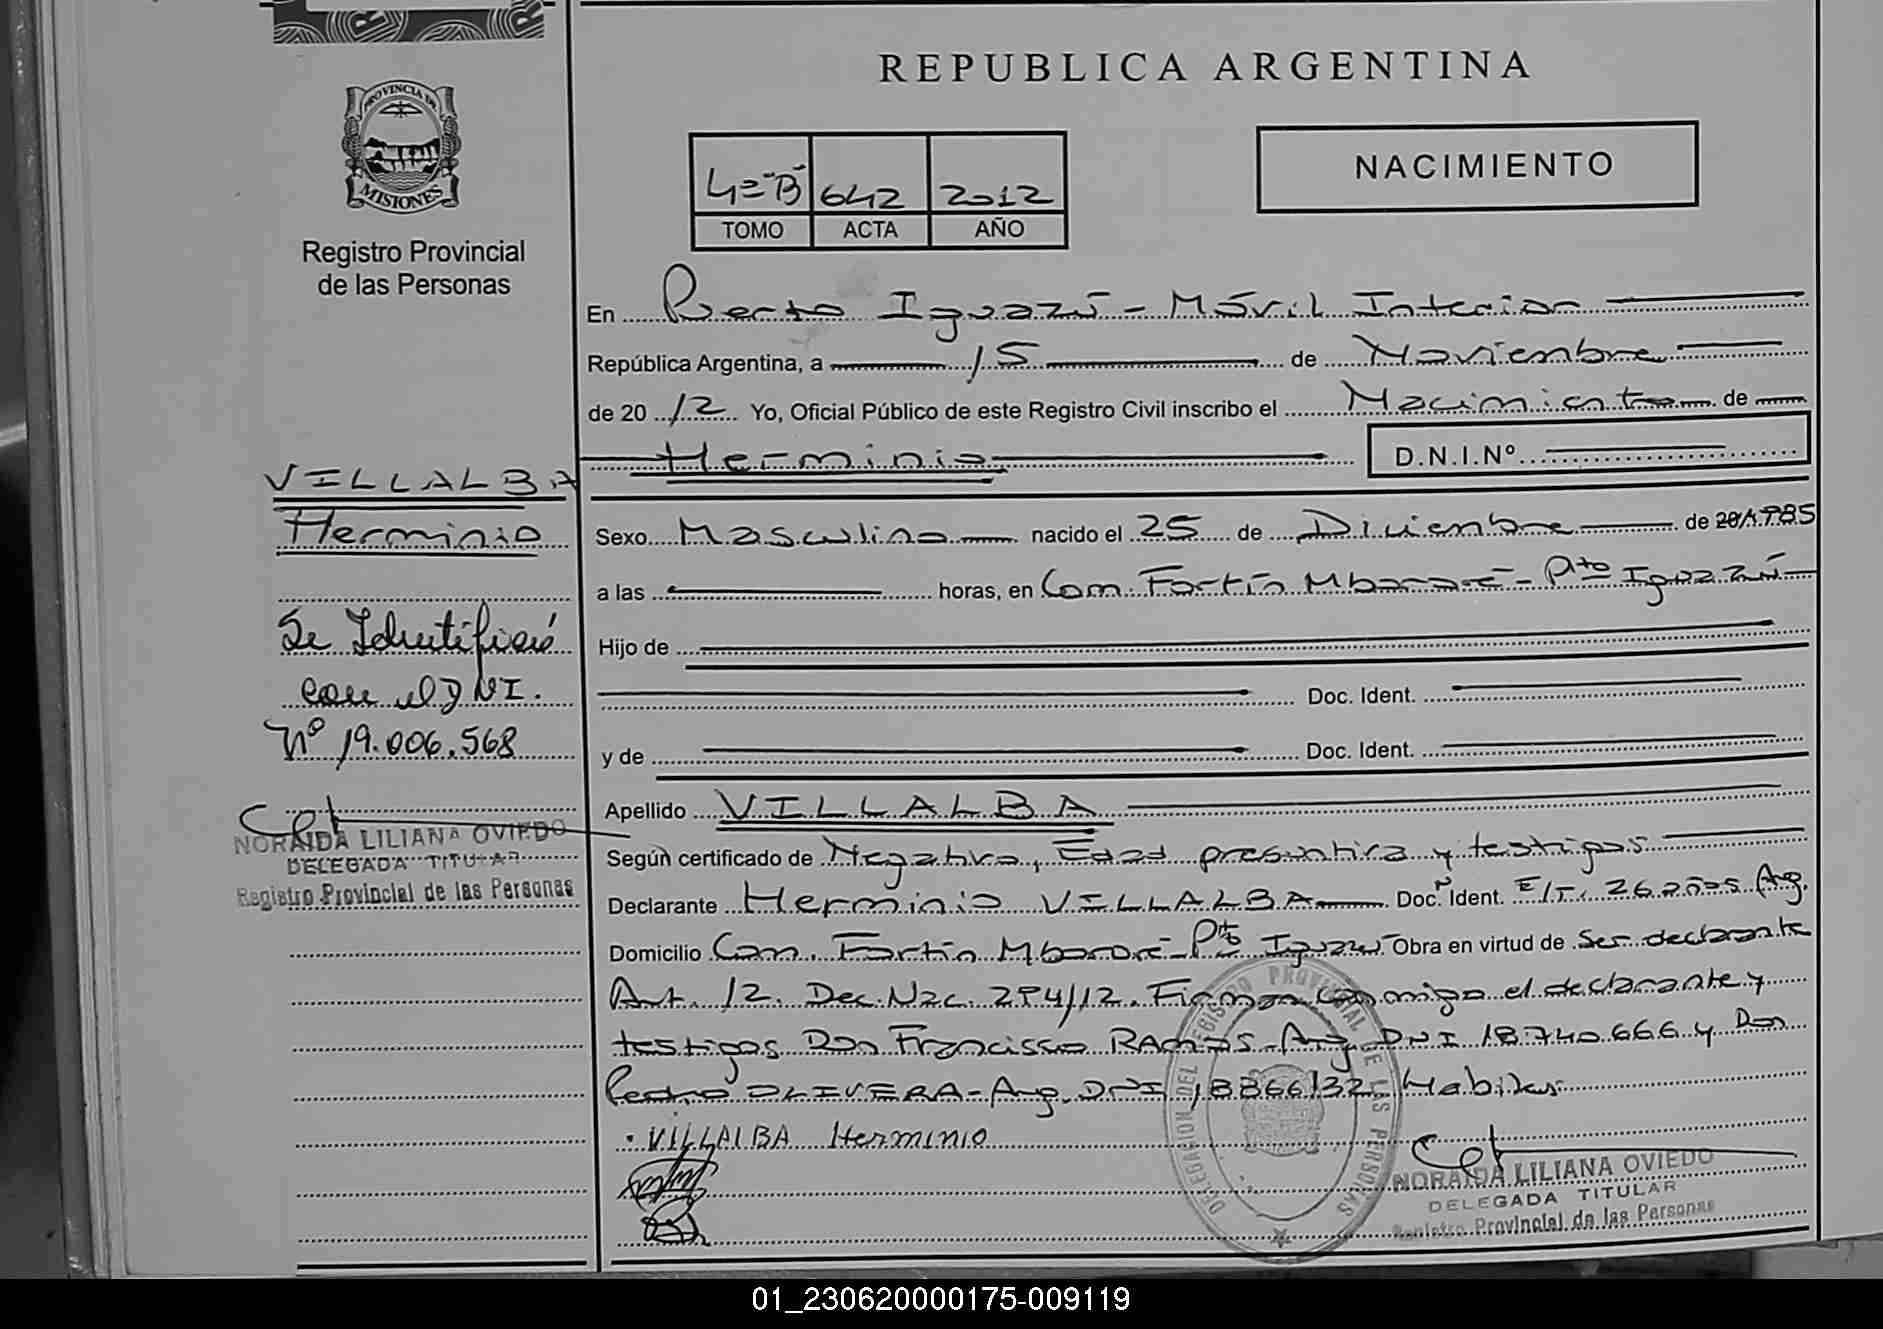 PROVINCIA DE
MISIONES
Registro Provincial
de las Personas
VILLALBA
Herminio
Se Identificó
con el DNI.
Nº 19.006.568
NORAIDA LILIANA OVIEDO
DELEGADA TITULAR
Registro Provincial de las Personas
REPUBLICA ARGENTINA
4="B" 642 2012
TOMO ACTA AÑO
NACIMIENTO
En Puerto Iguazú - Móvil Interior
República Argentina, a 15 de Noviembre
de 20 12 Yo, Oficial Público de este Registro Civil inscribo el Nacimiento de
Herminio D.N.I.Nº
Sexo Masculino nacido el 25 de Diciembre de 20 1985
a las horas, en Com. Fortín Mbararé - Pto Iguazú
Hijo de
Doc. Ident.
y de Doc. Ident.
Apellido VILLALBA
Según certificado de Negativo, Edad presuntiva y testigos
Declarante Herminio VILLALBA Doc. Ident. E/T. 26 años Arg.
Domicilio Com. Fortín Mbororé - Pto Iguazú Obra en virtud de Ser declarante
Art. 12. Dec. Nac. 294/12. Firman conmigo el declarante y
testigos Don Francisco RAMOS - Arg. DNI 18.740.666 y Don
Pedro OLIVERA - Arg. DNI 18866132 Habiles
VILLALBA Herminio
DELEGACION DEL REGISTRO PROVINCIAL DE LAS PERSONAS
NORAIDA LILIANA OVIEDO
DELEGADA TITULAR
Registro Provincial de las Personas
01_230620000175-009119